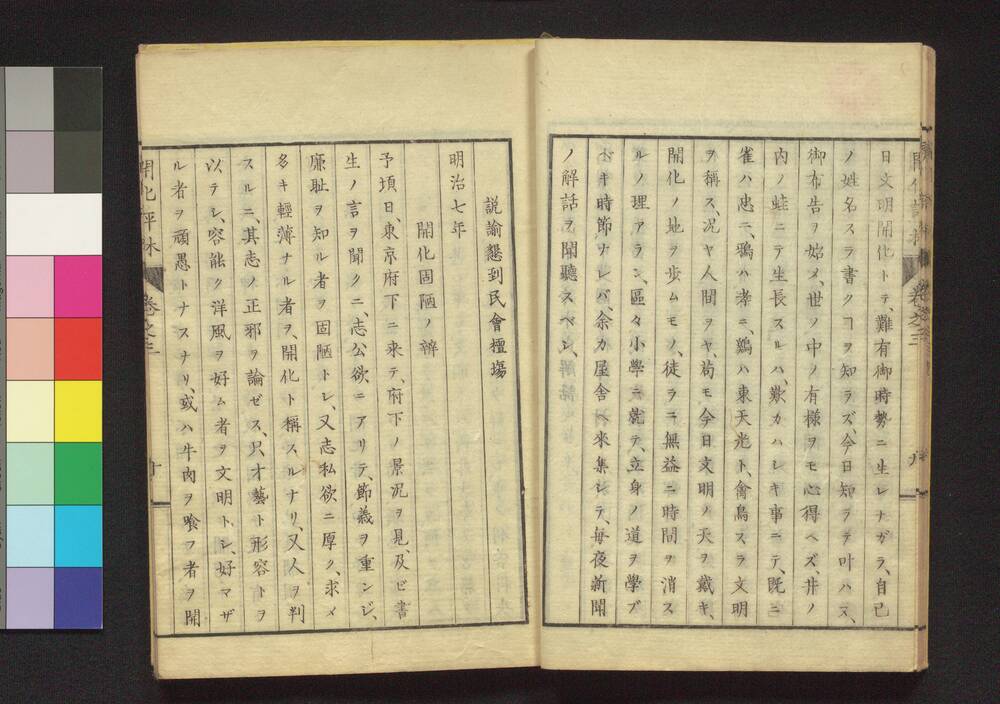 日文明開化トテ、難有御時勢ニ生レナガラ、自己
ノ姓名スラ書クヿヲ知ラズ、今日知ラテ叶ハヌ、
御布告ヲ始メ、世ノ中ノ有様ヲモ心得ヘズ、井ノ
内ノ蛙ニテ生長スルハ、歎カハシキ事ニテ、既ニ
雀ハ忠ニ、鴉ハ孝ニ、鷄ハ東天光ト、禽鳥スラ文明
ヲ稱ス、况ヤ人間ヲヤ、苟モ今日文明ノ天ヲ戴キ、
開化ノ地ヲ歩ムモノ、徒ラニ無益ニ時間ヲ消ス
ルノ理アラン、區々小學ニ就テ、立身ノ道ヲ學ブ
ベキ時節ナレバ、余カ屋舎ヘ來集シテ、毎夜新聞
ノ解話ヲ聞聽スベシ、
説諭懇到民會壇場
明治七年
開化固陋ノ辨
予頃日、東京府下ニ来テ、府下ノ景况ヲ見、及ビ書
生ノ言ヲ聞クニ、志公欲ニアリテ、節義ヲ重ンジ、
廉耻ヲ知ル者ヲ固陋トシ、又志私欲ニ厚ク、求メ
多キ輕薄ナル者ヲ、開化ト稱スルナリ、又人ヲ判
スルニ、其志ノ正邪ヲ論ゼス、只才藝ト形容トヲ
以テシ、容能ク洋風ヲ好ム者ヲ文明トシ、好マザ
ル者ヲ頑愚トナスナリ、或ハ牛肉ヲ喰フ者ヲ開
開化評林
卷之二
十